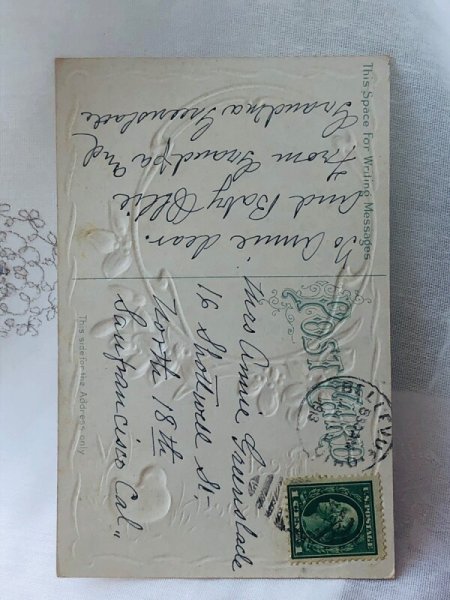 This Space for Writing Messages
To Annie dear.
and Baby Ollie
from Grandpa and
Grandma Greenslade
POST CARD
This side for the Address only
Mrs Annie Greenslade
16 Shotwell St,
North 18th
Sanfrancisco Cal"
BELLEVUE
1913
U.S. POSTAGE
1 CENT 1